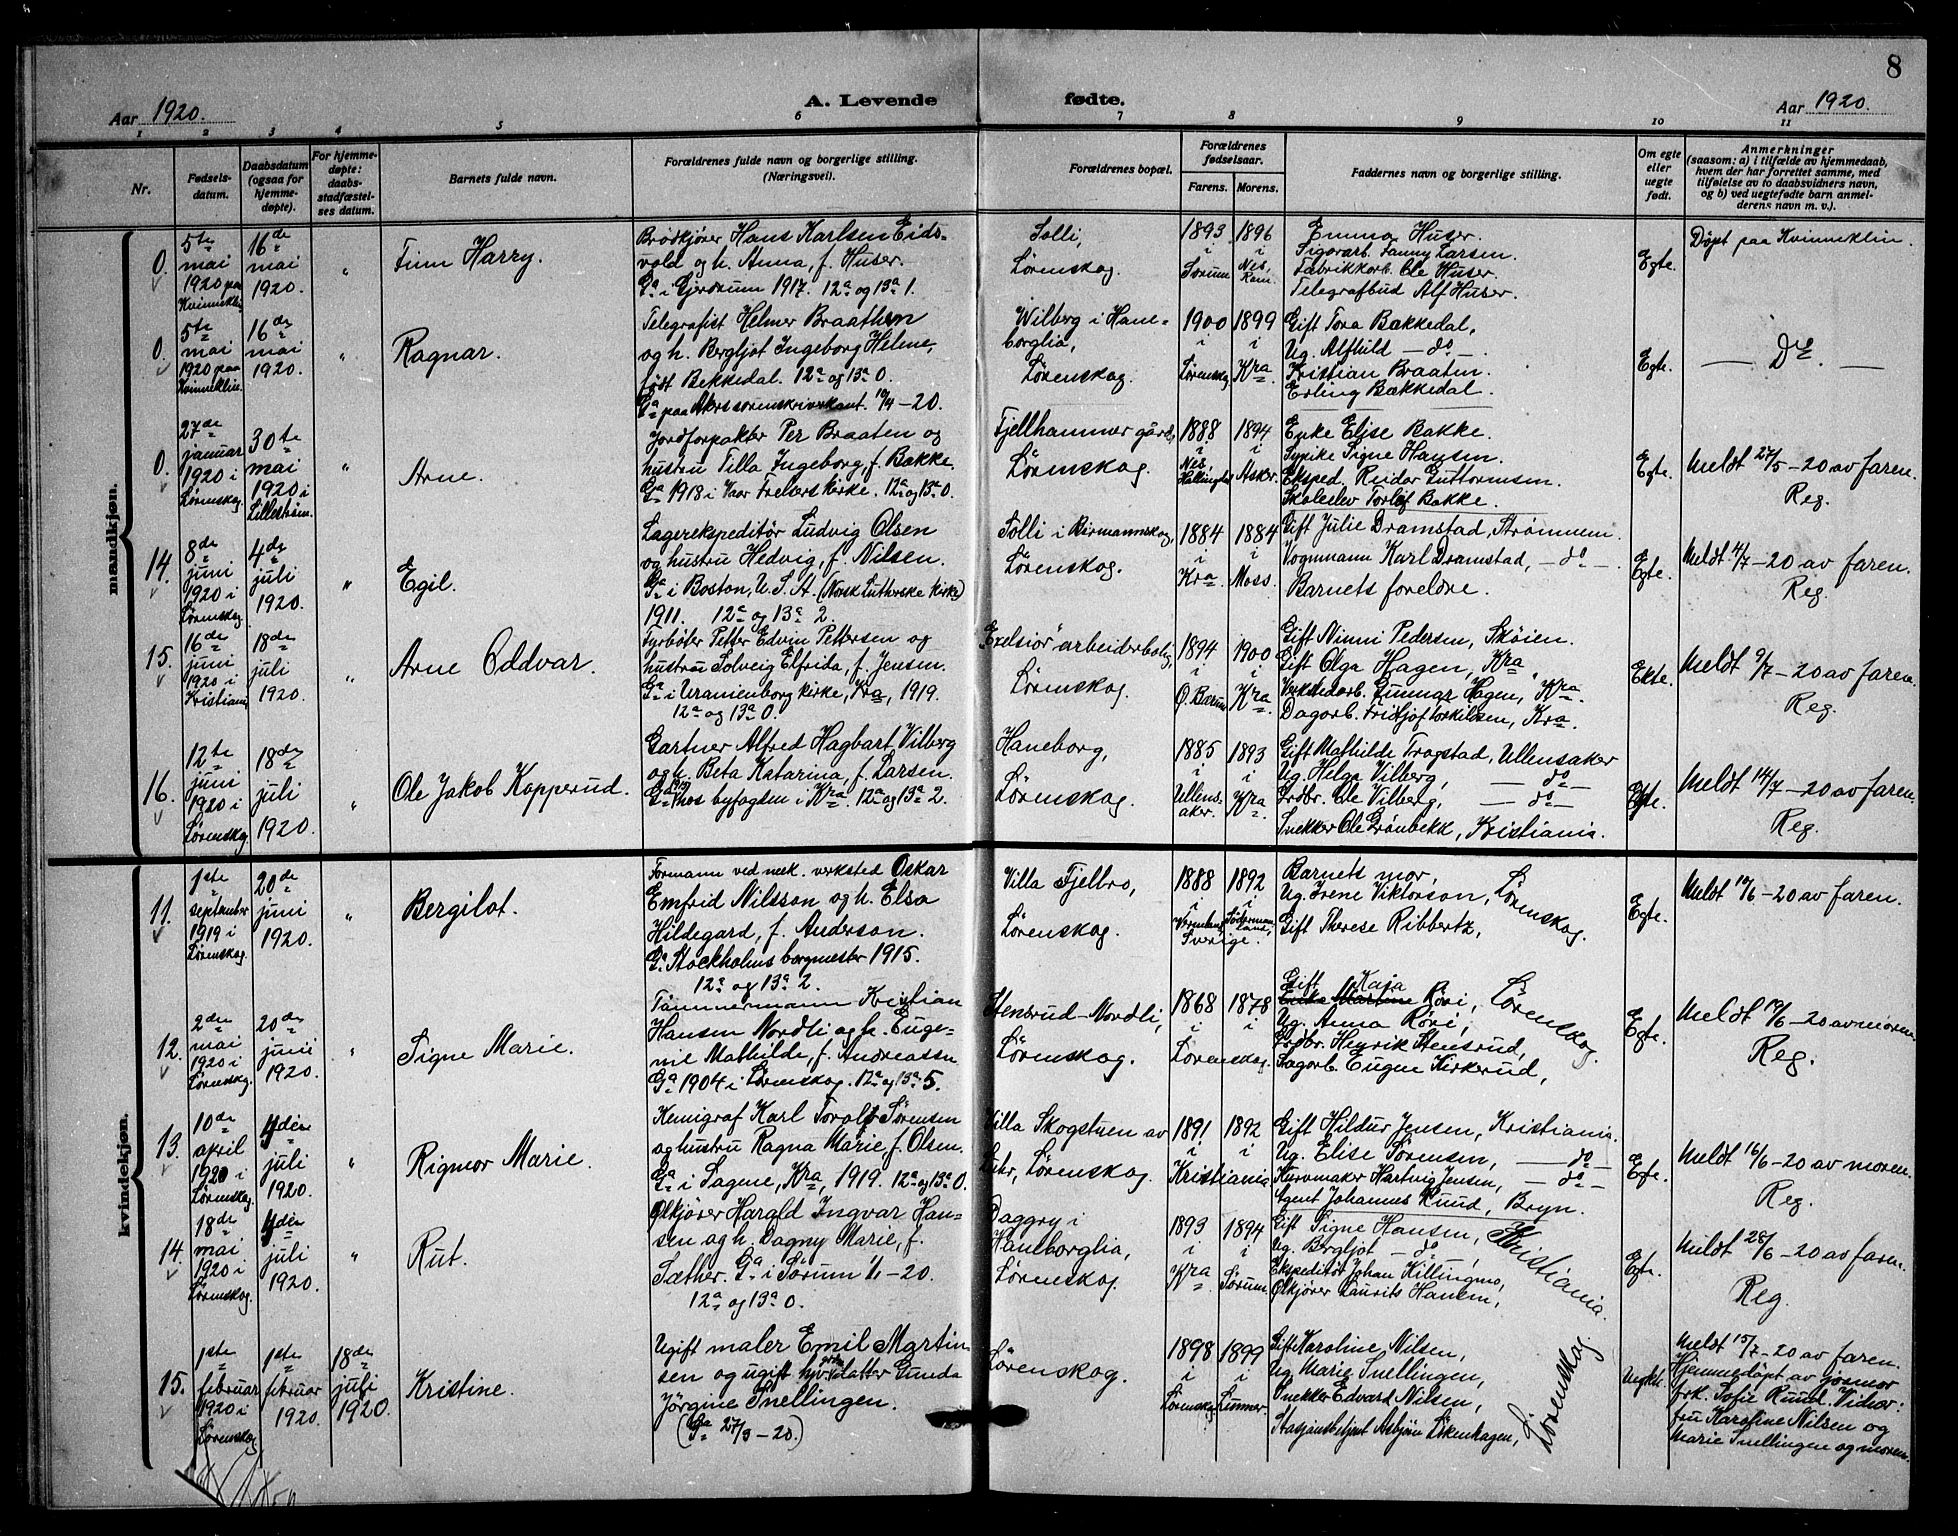 8
Aar 1920.
A. Levende fødte.
Aar 1920.
1 2 3 4 5 6 7 8 9 10 11
Nr.
Fødsels-
datum.
Daabsdatum
(ogsaa for
hjemme-
døpte).
For hjemme-
døpte:
daabs-
stadfæstel-
ses datum.
Barnets fulde navn.
Forældrenes fulde navn og borgerlige stilling.
(Næringsvei).
Forældrenes bopæl.
Forældrenes
fødselsaar.
Farens. Morens.
Faddernes navn og borgerlige stilling.
Om egte
eller
uegte
født.
Anmerkninger
(saasom: a) i tilfælde av hjemmedaab,
hvem der har forrettet samme, med
tilføielse av to daabsvidners navn,
og b) ved uegtefødte barn anmel-
derens navn m. v.).
mandkjøn.
0.
5te
mai
1920 paa
Kvinneklin.
16de
mai
1920.
"
Finn Harry.
Brødkjører Hans Karlsen Eids-
vold og h. Anna, f. Huser.
Ga i Gjerdrum 1917. 12a og 13a 1.
Solli,
Lørenskog.
1893
i
Sørum
1896
i
Nes,
Rom.
Emma Huser.
Sigorarb. Fanny Larsen.
Fabrikkarb. Ole Huser.
Telegrafbud Alf Huser.
Egte.
Døpt paa Kvinneklin.
0.
5te
mai
1920 paa
Kvinneklin.
16de
mai
1920.
"
Ragnar.
Telegrafist Helmer Braathen
og h. Bergljot Ingeborg Helene,
født Bekkedal. 12a og 13a 0.
Ga paa Akers sorenskriverkont. 10/4 - 20.
Wilberg i Hane-
borglia,
Lørenskog.
1900
i
Lørenskog
1899
i
Kra.
Gift Tora Bækkedal,
Ug. Alfhild - do -.
Kristian Braaten.
Erling Bækkedal.
Egte.
- Do. -
0.
27de
januar
1920 i
Lørenskog.
30te
mai
1920 i
Lillestrøm.
"
Arne.
Jordforpakter Per Braaten og
hustru Tilla Ingeborg, f. Bakke.
Ga 1918 i Vaar Frelsers kirke. 12a og 13a 0.
Fjellhammer gård,
Lørenskog.
1888
i
Nes,
Hallingdal
1894
i
Asker.
Enke Elise Bakke.
Frøike Signe Hansen.
Eksped. Reidar Guttormsen.
Skoleelev Torlof Bakke.
Egte.
Meldt 27/5 - 20 av faren.
Reg.
14.
8de
juni
1920 i
Lørenskog.
4de
juli
1920.
"
Egil.
Lagerekspeditör Ludvig Olsen
og hustru Hedvig, f. Nilsen.
Ga i Boston, U. S. A. (Norsk Lutherske kirke)
1911. 12a og 13a 2.
Solli i Rismannskog,
Lørenskog.
1884
i
Kra.
1884
i
Moss.
Gift Julie Dramstad, Strømmen.
Vognmann Karl Dramstad, - do -.
Barnets foreldre.
Egte.
Meldt 4/7 - 20 av faren.
Reg.
15.
16de
juni
1920 i
Kristiania
18de
juli
1920.
"
Arne Oddvar.
Fyrböter Petter Edvin Pettersen og
hustru Solveig Elfrida, f. Jensen.
Ga i Uranienborg kirke, Kra, 1919.
12a og 13a 0.
Exelsior" arbeiderbolig,
Lørenskog.
1894
i
Ö. Bærum
1900
i
Kra.
Gift Ninni Pedersen, Skøien.
Gift Olga Hagen, Kra.
Verkstedarb. Gunnar Hagen, Kra.
Dagarb. Fridtjof Torkildsen, Kra.
Ekte.
Meldt 9/7 - 20 av faren.
Reg.
16.
12te
juni
1920 i
Lørenskog.
18de
juli
1920.
"
Ole Jakob Kopperud.
Gartner Alfred Hagbart Vilberg
og h. Beta Katarina, f. Larsen.
Ga hos byfogden i Kra. 12a og 13a 2.
Haneborg,
Lørenskog.
1885
i
Ullens-
aker.
1893
i
Kra.
Gift Mathilde Trogstad, Ullensaker
Ug. Helga Vilberg, - do -
Grdbr. Ole Vilberg, - do -
Snekker Ole Grönbekk, Kristiania.
Egte.
Meldt 14/7 - 20 av faren.
Reg.
kvindekjøn.
11.
1ste
september
1919 i
Lørenskog.
20de
juni
1920.
"
Bergilot.
Formann ved mek. verksted Oskar
Emfrid Nilsson og h. Elsa
Hildegard, f. Anderson.
Ga Stockholms borgmester 1915.
12a og 13a 2.
Villa Fjelbro,
Lørenskog.
1888
i
Vermland,
1892
i
Söderman-
land,
Sverige.
Barnets mor,
Ug. Irene Viktorson,
Gift Therese Ribbertz,
Lørenskog.
Egte.
Meldt 10/6 - 20 av faren.
12.
2den
mai
1920 i
Lørenskog.
20de
juni
1920.
"
Signe Marie.
Tömmermann Kristian
Hansen Nordli og h. Euge-
nie Mathilde, f. Andreassen
Ga 1904 i Lørenskog. 12a og 13a 5.
Stensrud-Nordli,
Lørenskog.
1868
i
1878
i
Lørenskog.
Gift Kaja Röri,
Ug. Anna Röri,
Grdbr. Henrik Stensrud,
Sagarb. Eugen Kirkerud,
Lørenskog.
Egte.
Meldt 19/6 - 20 av moren.
Reg.
13.
10de
april
1920 i
Lørenskog.
4de
juli
1920.
"
Rigmor Marie.
Kemigraf Karl Toralf Sørensen
og hustru Ragna Marie, f. Olsen.
Ga i Sagene, Kra, 1919. 12a og 13a 0.
Villa Skogstuen av
Lørenskog.
1891
i
1892
i
Kristiania
Gift Hildur Jensen, Kristiania.
Ug. Elise Sörensen, - do -
Kurvmaker Hartvig Jensen, - do -
Agent Johannes Ruud, Bryn.
Egte.
Meldt 16/6 - 20 av moren.
Reg.
14.
18de
mai
1920 i
Lørenskog.
4de
juli
1920.
"
Rut.
Ölkjører Harald Ingvar Han-
sen og h. Dagny Marie, f.
Sæther. Ga i Sørum 1/1 - 20.
12a og 13a 0.
Daggry i
Haneborglia,
Lørenskog.
1893
i
Kra
1894
i
Sørum.
Gift Signe Hansen,
Ug. Bergljot - do -,
Ekspeditör Johan Killingmo,
Ölkjører Laurits Hansen,
Kristiania.
Egte.
Meldt 28/6 - 20 av faren.
Reg.
15.
1ste
februar
1920 i
Lørenskog
1ste
februar
1920.
18de
juli
1920.
Kristine.
Ugift maler Emil Martin-
sen og ugift datter Gunda
Jörgine Snellingen.
(Ga 27/3 - 20.)
Lørenskog.
1898
i
Lørenskog
1899
i
Lunner.
Gift Karoline Nilsen,
Ug. Marie Snellingen,
Snekker Edvard Nilsen,
Stasjonsbetjent Asbjörn Løkenhagen,
Lörenskog
Uegte.
Meldt 15/7 - 20 av faren.
Hjemmedöpt av josmor
frk. Sofie Ruud. Vidner:
fru Karoline Nilsen og
Marie Snellingen og moren.